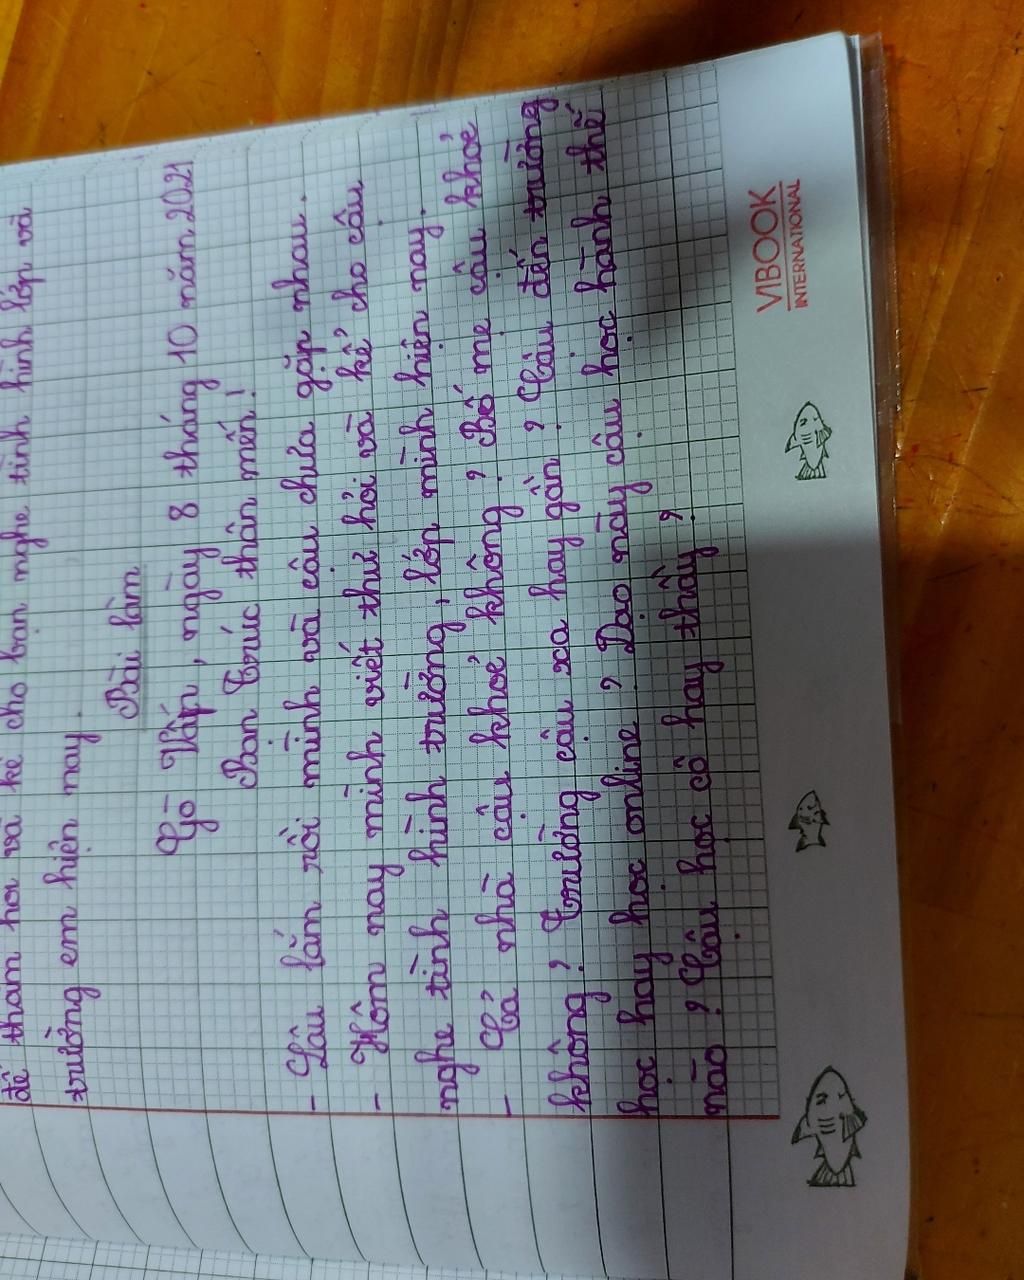 để thăm hỏi và kể cho bạn nghe tình hình lớp và
trường em hiện nay.
Bài làm
Gò Vấp, ngày 8 tháng 10 năm 2021
Bạn Trúc thân mến!
- Lâu lắm rồi mình và cậu chưa gặp nhau.
- Hôm nay mình viết thư hỏi và kể cho cậu
nghe tình hình trường, lớp mình hiện nay.
- Cả nhà cậu khoẻ không? Bố mẹ cậu khoẻ
không? Trường cậu xa hay gần? Cậu đến trường
học hay học online? Dạo này cậu học hành thế
nào? Cậu học cô hay thầy?
VIBOOK
INTERNATIONAL